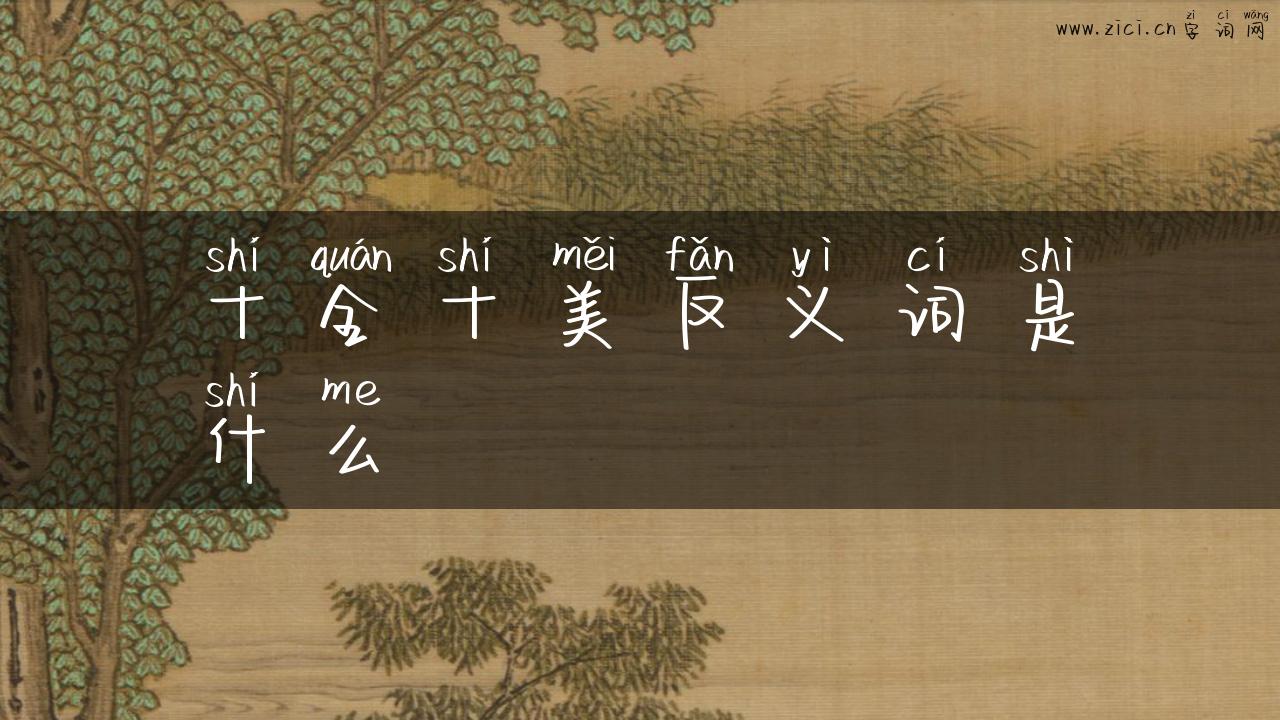 zì cí wǎng
www.zici.cn 字 词 网
shí quán shí měi fǎn yì cí shì
十 全 十 美 反 义 词 是
shí me
什 么